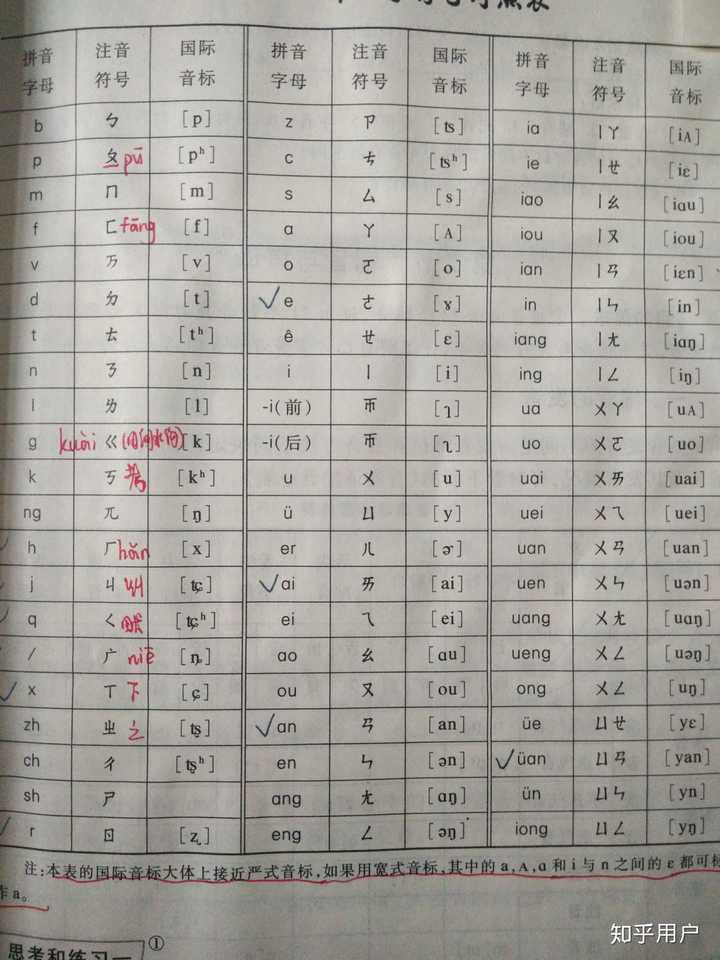 拼音字母 注音符号 国际音标 拼音字母 注音符号 国际音标 拼音字母 注音符号 国际音标
b ㄅ [p] z ㄗ [ʦ] ia ㄧㄚ [iᴀ]
p ㄆ pū [pʰ] c ㄘ [ʦʰ] ie ㄧㄝ [iɛ]
m ㄇ [m] s ㄙ [s] iao ㄧㄠ [iɑu]
f ㄈ fāng [f] a ㄚ [ᴀ] iou ㄧㄡ [iou]
v ㄪ [v] o ㄛ [o] ian ㄧㄢ [iɛn]
d ㄉ [t] ✓e ㄜ [ɤ] in ㄧㄣ [in]
t ㄊ [tʰ] ê ㄝ [ɛ] iang ㄧㄤ [iɑŋ]
n ㄋ [n] i ㄧ [i] ing ㄧㄥ [iŋ]
l ㄌ [l] -i(前) ㄭ [ɿ] ua ㄨㄚ [uᴀ]
g kuài ㄍ [k] -i(后) ㄭ [ʅ] uo ㄨㄛ [uo]
k ㄎ [kʰ] u ㄨ [u] uai ㄨㄞ [uai]
ng ㄫ [ŋ] ü ㄩ [y] uei ㄨㄟ [uei]
h ㄏ hǎn [x] er ㄦ [ɚ] uan ㄨㄢ [uan]
j ㄐ [ʨ] ✓ai ㄞ [ai] uen ㄨㄣ [uən]
q ㄑ [ʨʰ] ei ㄟ [ei] uang ㄨㄤ [uɑŋ]
/ ㄬ niē [ȵ] ao ㄠ [ɑu] ueng ㄨㄥ [uəŋ]
✓x ㄒ 下 [ɕ] ou ㄡ [ou] ong ㄨㄥ [uŋ]
zh ㄓ 之 [tʂ] ✓an ㄢ [an] üe ㄩㄝ [yɛ]
ch ㄔ [tʂʰ] en ㄣ [ən] ✓üan ㄩㄢ [yan]
sh ㄕ ang ㄤ [ɑŋ] ün ㄩㄣ [yn]
r ㄖ [ʐ] eng ㄥ [əŋ] iong ㄩㄥ [yŋ]
注:本表的国际音标大体上接近严式音标,如果用宽式音标,其中的 a,ᴀ,ɑ 和 i 与 n 之间的 ɛ 都可标
作 a。
思考和练习一 ①
知乎用户